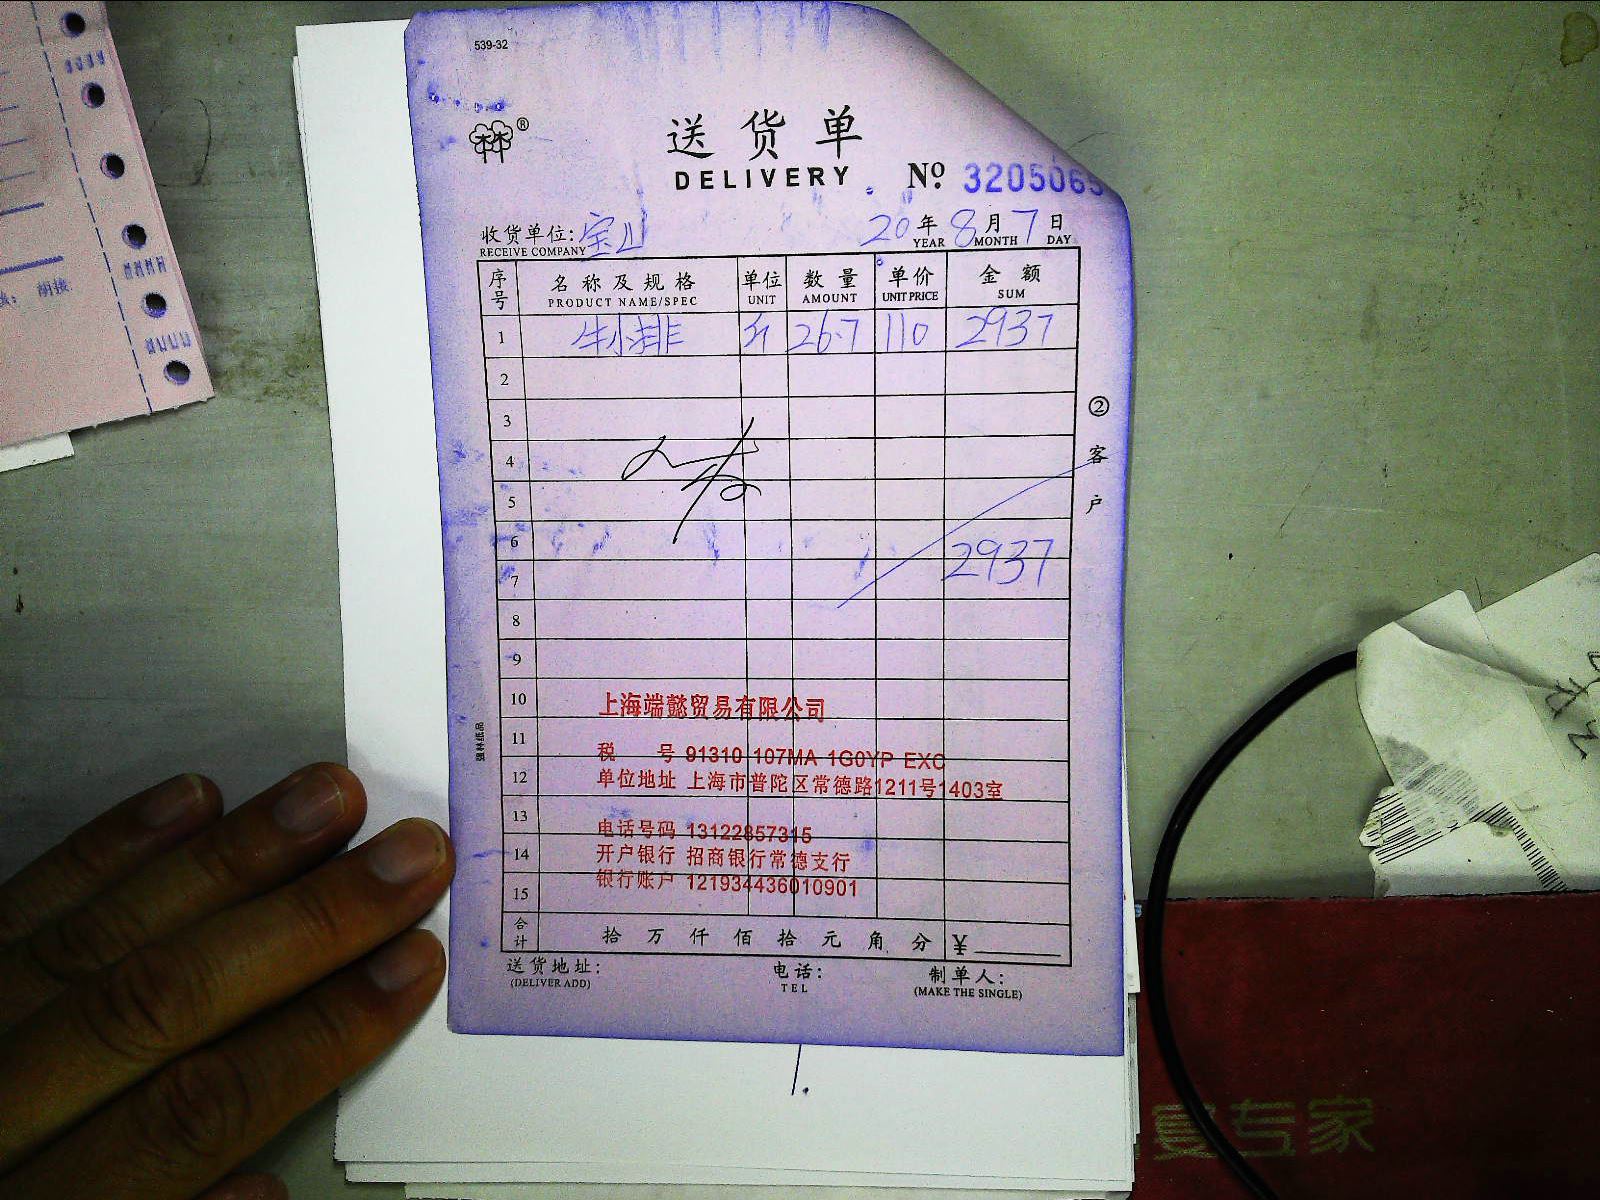 539-32
林林®
送货单
DELIVERY
Nº 3205065
收货单位: 宝山 20年8月7日
RECEIVE COMPANY YEAR MONTH DAY
序号 名称及规格 单位 数量 单价 金额
PRODUCT NAME/SPEC UNIT AMOUNT UNIT PRICE SUM
1 牛小排 斤 26.7 110 2937
2
3
4
5
6
2937
7
8
9
10
上海端懿贸易有限公司
11
税 号 91310 107MA 1G0YP EXC
12
单位地址 上海市普陀区常德路1211号1403室
13
电话号码 13122857315
14
开户银行 招商银行常德支行
银行账户 121934436010901
15
合计 拾万仟佰拾元角分 ¥
送货地址: 电话: 制单人:
(DELIVER ADD) TEL (MAKE THE SINGLE)
②客户
强林纸品
宴专家